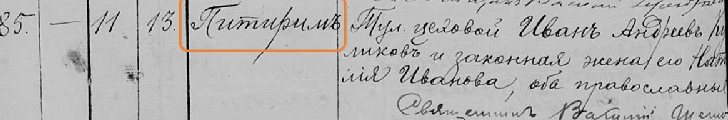 85. — 11 13. Питиримъ Тул. цеховой Иванъ Андреевъ
ликовъ и законная жена его Ната
лія Иванова, оба православные
Священникъ Василій